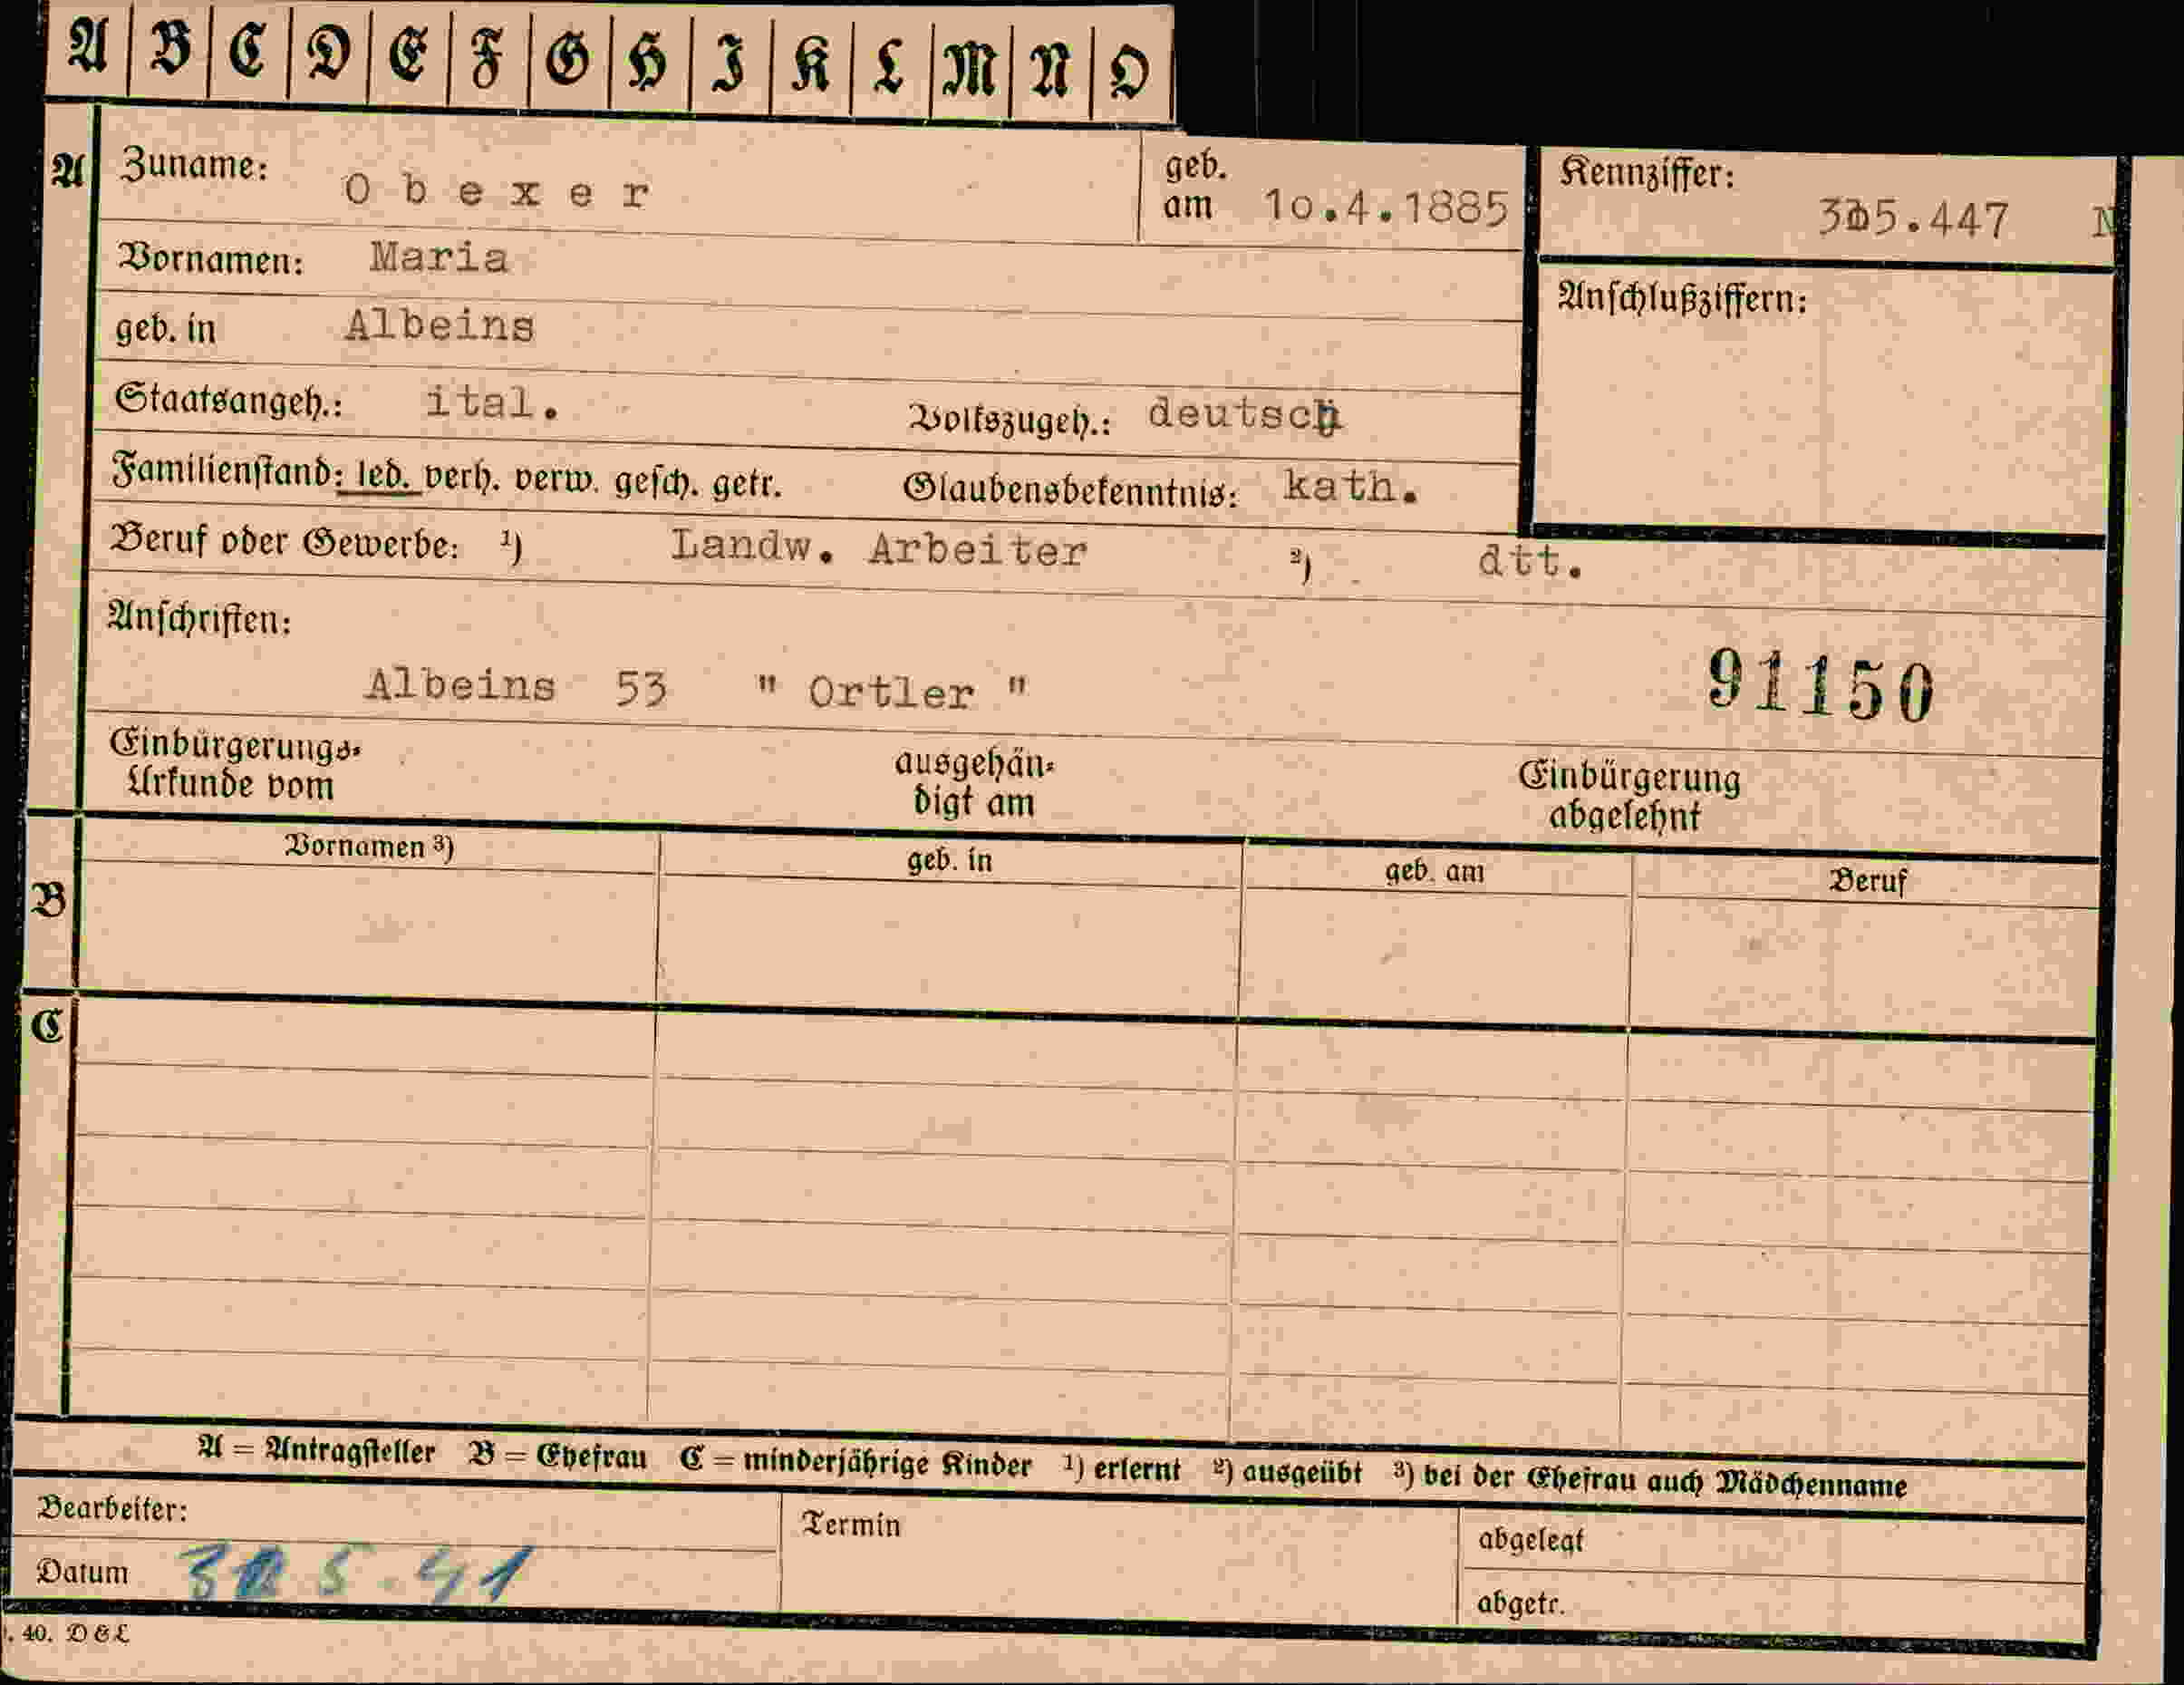 A B C D E F G H I K L M N O
A Zuname: Obexer geb. am 10.4.1885 Kennziffer: 305.447 N
Vornamen: Maria
Anschlußziffern:
geb. in Albeins
Staatsangeh.: ital. Volkszugeh.: deutsch
Familienstand: led. verh. verw. gesch. getr. Glaubensbekenntnis: kath.
Beruf oder Gewerbe: ¹) Landw. Arbeiter ²) dtt.
Anschriften:
Albeins 53 " Ortler " 91150
Einbürgerungs-
Urkunde vom
ausgehän-
digt am
Einbürgerung
abgelehnt
Vornamen ³) geb. in geb. am Beruf
B
C
A = Antragsteller B = Ehefrau C = minderjährige Kinder ¹) erlernt ²) ausgeübt ³) bei der Ehefrau auch Mädchenname
Bearbeiter: Termin abgelegt
Datum 5.41 abgetr.
. 40. D & L